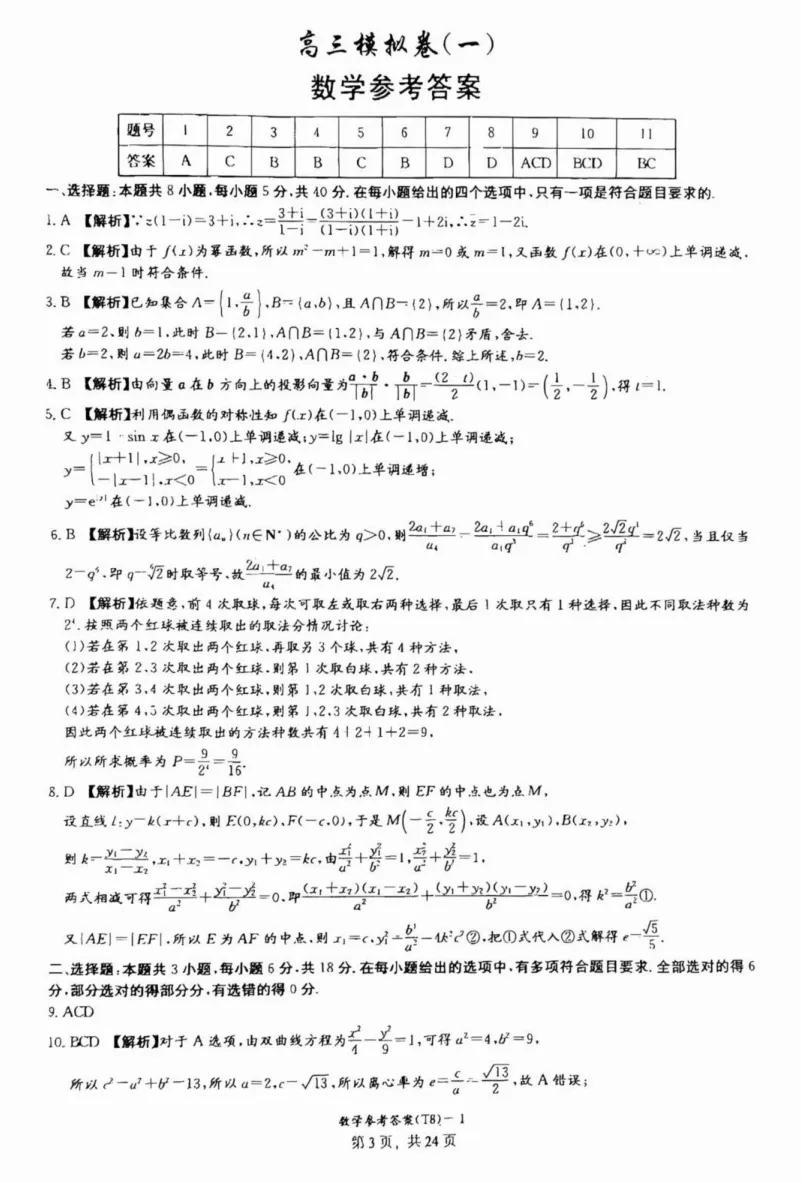 高三模拟卷(一)
数学参考答案
题号 1 2 3 4 5 6 7 8 9 10 11
答案 A C B B C B D D ACD BCD BC
一、选择题:本题共 8 小题,每小题 5 分,共 40 分.在每小题给出的四个选项中,只有一项是符合题目要求的.
1. A 【解析】∵z(1-i)=3+i,∴z=(3+i)/(1-i)=(3+i)(1+i)/(1-i)(1+i)=1+2i,∴z̄=1-2i.
2. C 【解析】由于 f(x)为幂函数,所以 m²-m+1=1,解得 m=0 或 m=1,又函数 f(x)在(0,+∞)上单调递减,
故当 m=1 时符合条件.
3. B 【解析】已知集合 A={1,a/b},B={a,b},且 A∩B={2},所以 a/b=2,即 A={1,2}.
若 a=2,则 b=1,此时 B={2,1},A∩B={1,2},与 A∩B={2}矛盾,舍去.
若 b=2,则 a=2b=4,此时 B={4,2},A∩B={2},符合条件.综上所述,b=2.
4. B 【解析】由向量 a 在 b 方向上的投影向量为 a·b/|b| · b/|b| = (2-t)/2 (1,-1)=(1/2,-1/2),得 t=1.
5. C 【解析】利用偶函数的对称性知 f(x)在(-1,0)上单调递减.
又 y=1-sin x 在(-1,0)上单调递减;y=lg |x|在(-1,0)上单调递减;
y={|x+1|,x≥0, -|x-1|,x<0 ={x+1,x≥0, x-1,x<0 在(-1,0)上单调递增;
y=e^|x|在(-1,0)上单调递减.
6. B 【解析】设等比数列{aₙ}(n∈N*)的公比为 q>0,则 (2a₁+a₇)/a₄=(2a₁+a₁q⁶)/a₁q³=(2+q⁶)/q³≥2√2q³/q³=2√2,当且仅当
2=q⁶,即 q=⁶√2时取等号,故 (2a₁+a₇)/a₄ 的最小值为 2√2.
7. D 【解析】依题意,前 4 次取球,每次可取左或取右两种选择,最后 1 次取只有 1 种选择,因此不同取法种数为
2⁴.按照两个红球被连续取出的取法分情况讨论:
(1)若在第 1,2 次取出两个红球,再取另 3 个球,共有 4 种方法,
(2)若在第 2,3 次取出两个红球,则第 1 次取白球,共有 2 种方法,
(3)若在第 3,4 次取出两个红球,则第 1,2 次取白球,共有 1 种取法,
(4)若在第 4,5 次取出两个红球,则第 1,2,3 次取白球,共有 2 种取法,
因此两个红球被连续取出的方法种数共有 4+2+1+2=9,
所以所求概率为 P=9/2⁴=9/16.
8. D 【解析】由于|AE|=|BF|,记 AB 的中点为点 M,则 EF 的中点也为点 M,
设直线 l:y=k(x+c),则 E(0,kc),F(-c,0),于是 M(-c/2,kc/2),设 A(x₁,y₁),B(x₂,y₂),
则 k=(y₁-y₂)/(x₁-x₂),x₁+x₂=-c,y₁+y₂=kc,由 x₁²/a²+y₁²/b²=1,x₂²/a²+y₂²/b²=1,
两式相减可得 (x₁²-x₂²)/a²+(y₁²-y₂²)/b²=0,即 (x₁+x₂)(x₁-x₂)/a²+(y₁+y₂)(y₁-y₂)/b²=0,得 k²=b²/a²①.
又|AE|=|EF|,所以 E 为 AF 的中点,则 x₁=c,y₁²=b⁴/a²=4k²c²②,把①式代入②式解得 e=√5/5.
二、选择题:本题共 3 小题,每小题 6 分,共 18 分.在每小题给出的选项中,有多项符合题目要求.全部选对的得 6
分,部分选对的得部分分,有选错的得 0 分.
9. ACD
10. BCD 【解析】对于 A 选项,由双曲线方程为 x²/4-y²/9=1,可得 a²=4,b²=9,
所以 c²=a²+b²=13,所以 a=2,c=√13,所以离心率为 e=c/a=√13/2,故 A 错误;
数学参考答案(T8)-1
第3页,共24页